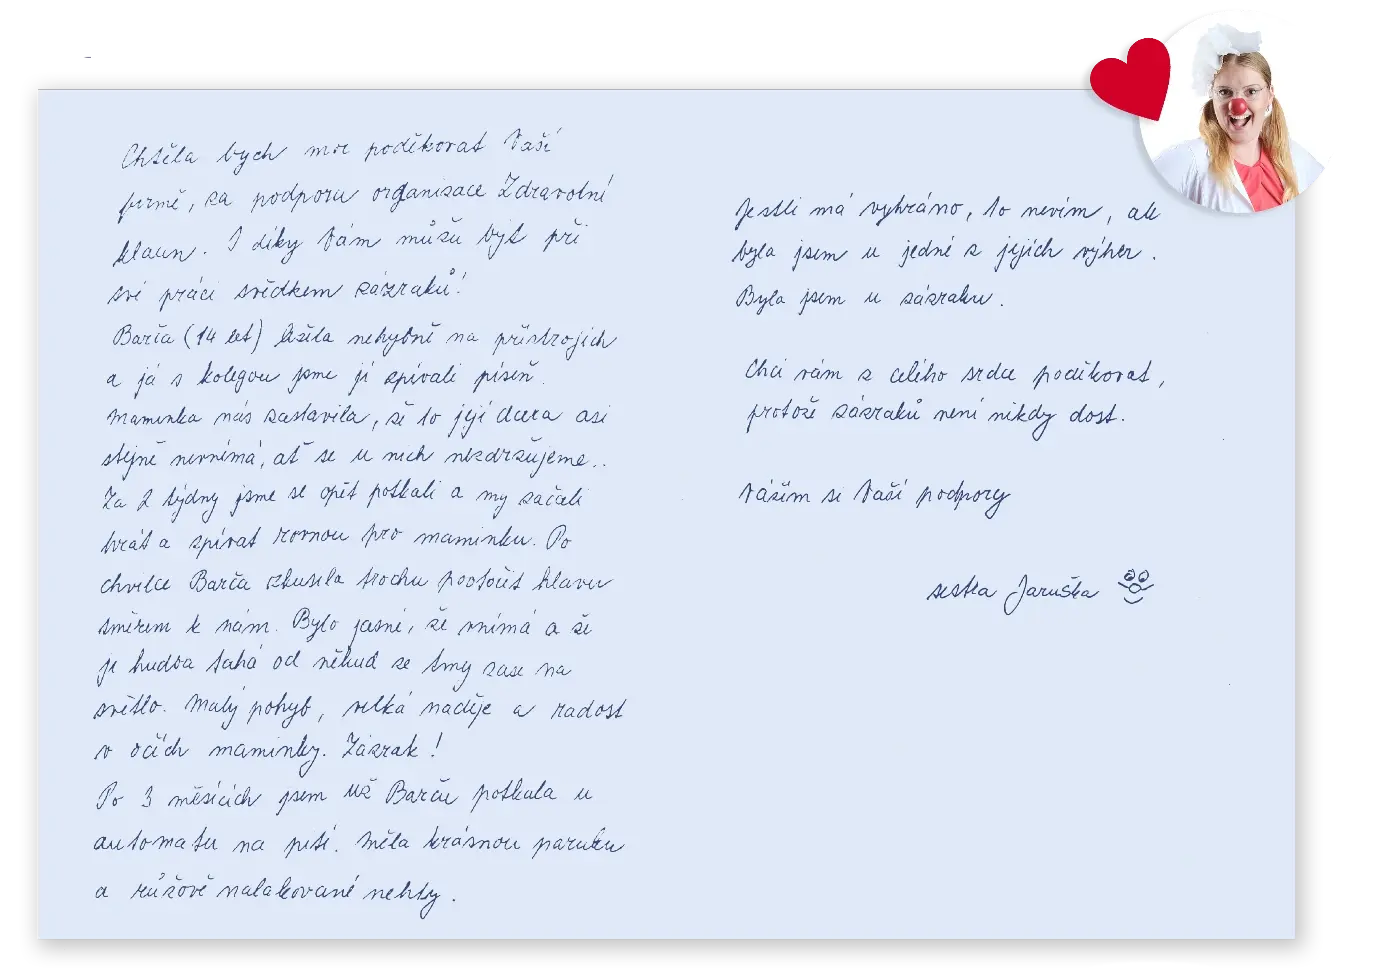 Chtěla bych moc poděkovat Vaší
firmě, za podporu organizace Zdravotní
klaun. I díky Vám můžu být při
své práci svědkem zázraků!
Barča (14 let) ležela nehybně na přístrojích
a já s kolegou jsme jí zpívali píseň.
Maminka nás zastavila, že to její dcera asi
stejně nevnímá, ať se u nich nezdržujeme..
Za 2 týdny jsme se opět potkali a my začali
hrát a zpívat rovnou pro maminku. Po
chvilce Barča zkusila trochu pootočit hlavu
směrem k nám. Bylo jasné, že vnímá a že
je hudba tahá od někud ze tmy zase na
světlo. Malý pohyb, velká naděje a radost
v očích maminky. Zázrak!
Po 3 měsících jsem už Barču potkala u
automatu na pití. Měla krásnou paruku
a růžově nalakované nehty.
Jestli má vyhráno, to nevím, ale
byla jsem u jedné z jejích výher.
Byla jsem u zázraku.
Chci vám z celého srdce poděkovat,
protože zázraků není nikdy dost.
Vážím si Vaší podpory
sestra Jaruška